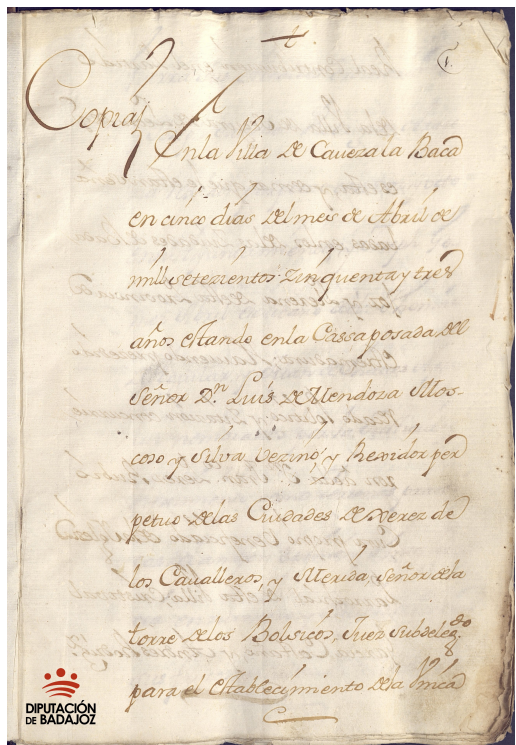 1.
Copia
En la Villa de Caveza la Baca
en cinco dias del mes de Abril de
mill setezientos zinquenta y tres
años estando en la Cassa posada del
Señor Dn Luis de Mendoza Mos-
coso y Silva Vezino, y Rexidor per
petuo de las Ciudades de Xerez de
los Cavalleros, y Merida, Señor de la
torre de los Bolsicos, Juez Subdelegdo
para el establecimiento de la Vnica
DIPUTACIÓN
DE BADAJOZ